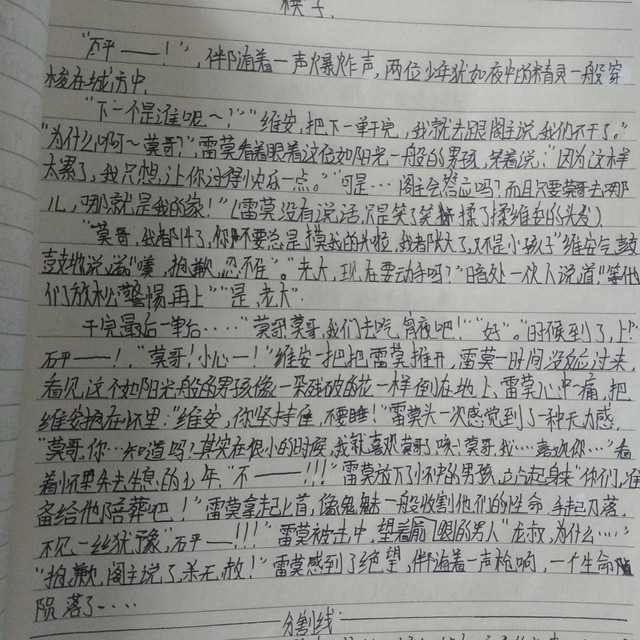 楔子.
“砰——！”，伴随着一声爆炸声，两位少年犹如夜中的精灵一般穿
梭在城市中.
“下一个是谁呢～？”“维安，把下一单干完，我就去跟阁主说，我们不干了。”
“为什么啊～莫哥？”雷莫看着眼着这位如阳光一般的男孩，笑着说：“因为这样
太累了，我只想让你过得快乐一点。”“可是…阁主会答应吗？而且只要莫哥去哪
儿，哪就是我的家！”（雷莫没有说话，只是笑了笑，揉了揉维安的头发）
“莫哥，我都十几了，你不要总是摸我的头啦，我都大了，又不是小孩子”维安气鼓
鼓地说道“噗，抱歉，忍不住”。“老大，现在要动手吗？”暗处一伙人说道“等他
们放松警惕，再上”“是，老大”.
干完最后一单后……“莫哥莫哥，我们去吃宵夜吧！”“好”。“时候到了，上”
砰——！“莫哥！小心—！”维安一把把雷莫推开，雷莫一时间没反应过来，
看见这个如阳光般的男孩像一朵残破的花一样倒在地上、雷莫心中一痛，把
维安抱在怀里：“维安，你坚持住，不要睡！”雷莫头一次感觉到了一种无力感，
“莫哥，你…知道吗？其实在很小的时候，我就喜欢莫哥了，咳！莫哥，我…喜欢你…”看
着怀里失去生息的少年，“不——！！！”雷莫放下了怀中的男孩，立刻起身来“你们，准
备给他陪葬吧！”雷莫拿起匕首，像鬼魅一般收割他们的性命，手起刀落，
不见一丝犹豫，“砰——！！！”雷莫被击中，望着眼的男人“龙叔，为什么…”
“抱歉，阁主说了，杀无赦！”雷莫感到了绝望，伴随着一声枪响，一个生命
陨落了……
分割线